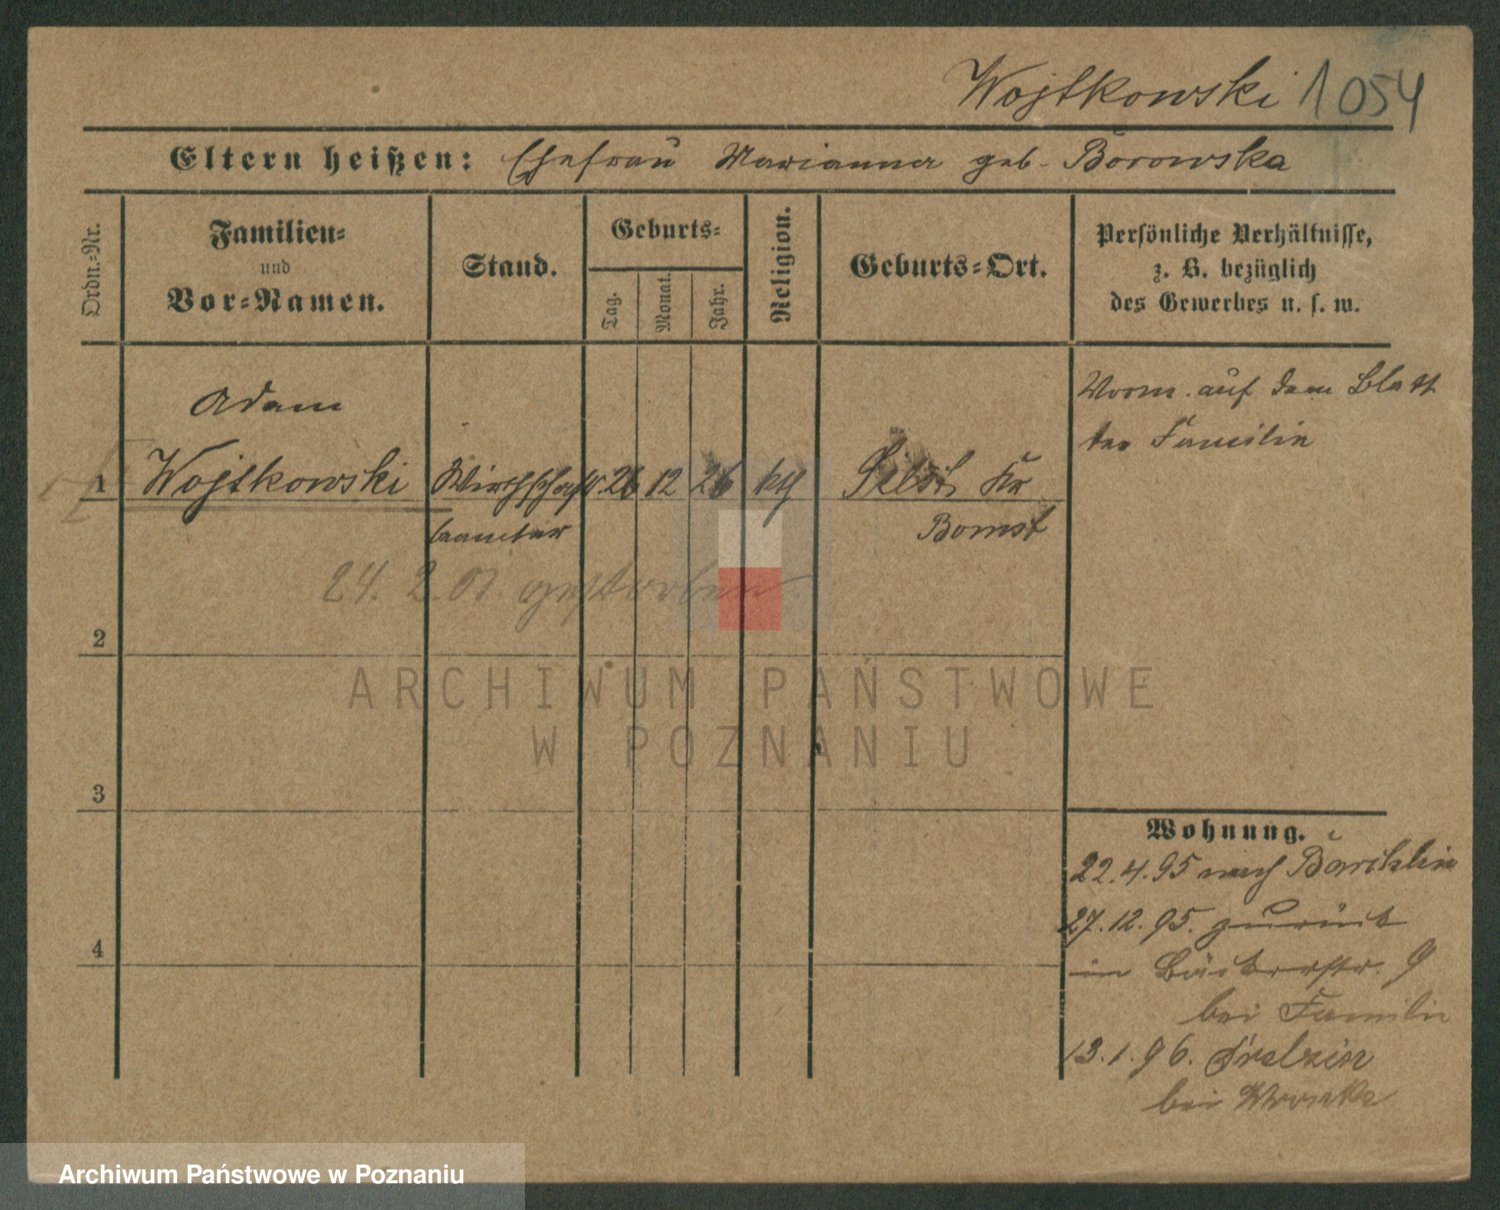 Wojtkowski 1054
Eltern heißen: Ehefrau Marianna geb. Borowska
Ordn.-Nr.
Familien-
und
Vor-Namen.
Stand.
Geburts-
Tag.
Monat.
Jahr.
Religion.
Geburts-Ort.
Persönliche Verhältnisse,
z. B. bezüglich
des Gewerbes u. s. w.
Adam
1 Wojtkowski Wirthschafts 26 12 26 kth Kr
beamter Bomst
24. 2. 01 gestorben
auf dem Blatt
der Familie
2
3
4
Wohnung.
22.4.95 nach
27.12.95. zurück
in Bäckerstr. 9
bei Familie
13.1.96.
bei Wronke
ARCHIWUM PAŃSTWOWE
W POZNANIU
Archiwum Państwowe w Poznaniu